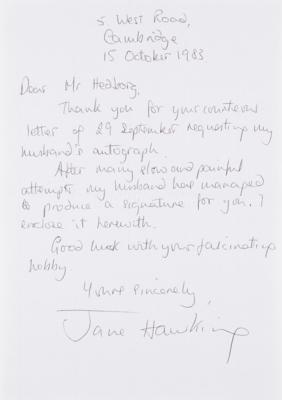 5 West Road,
Cambridge
15 October 1983
Dear Mr Hedborg,
Thank you for your courteous
letter of 29 September requesting my
husband's autograph.
After many slow and painful
attempts my husband has managed
to produce a signature for you. I
enclose it herewith.
Good luck with your fascinating
hobby
Yours sincerely,
Jane Hawking